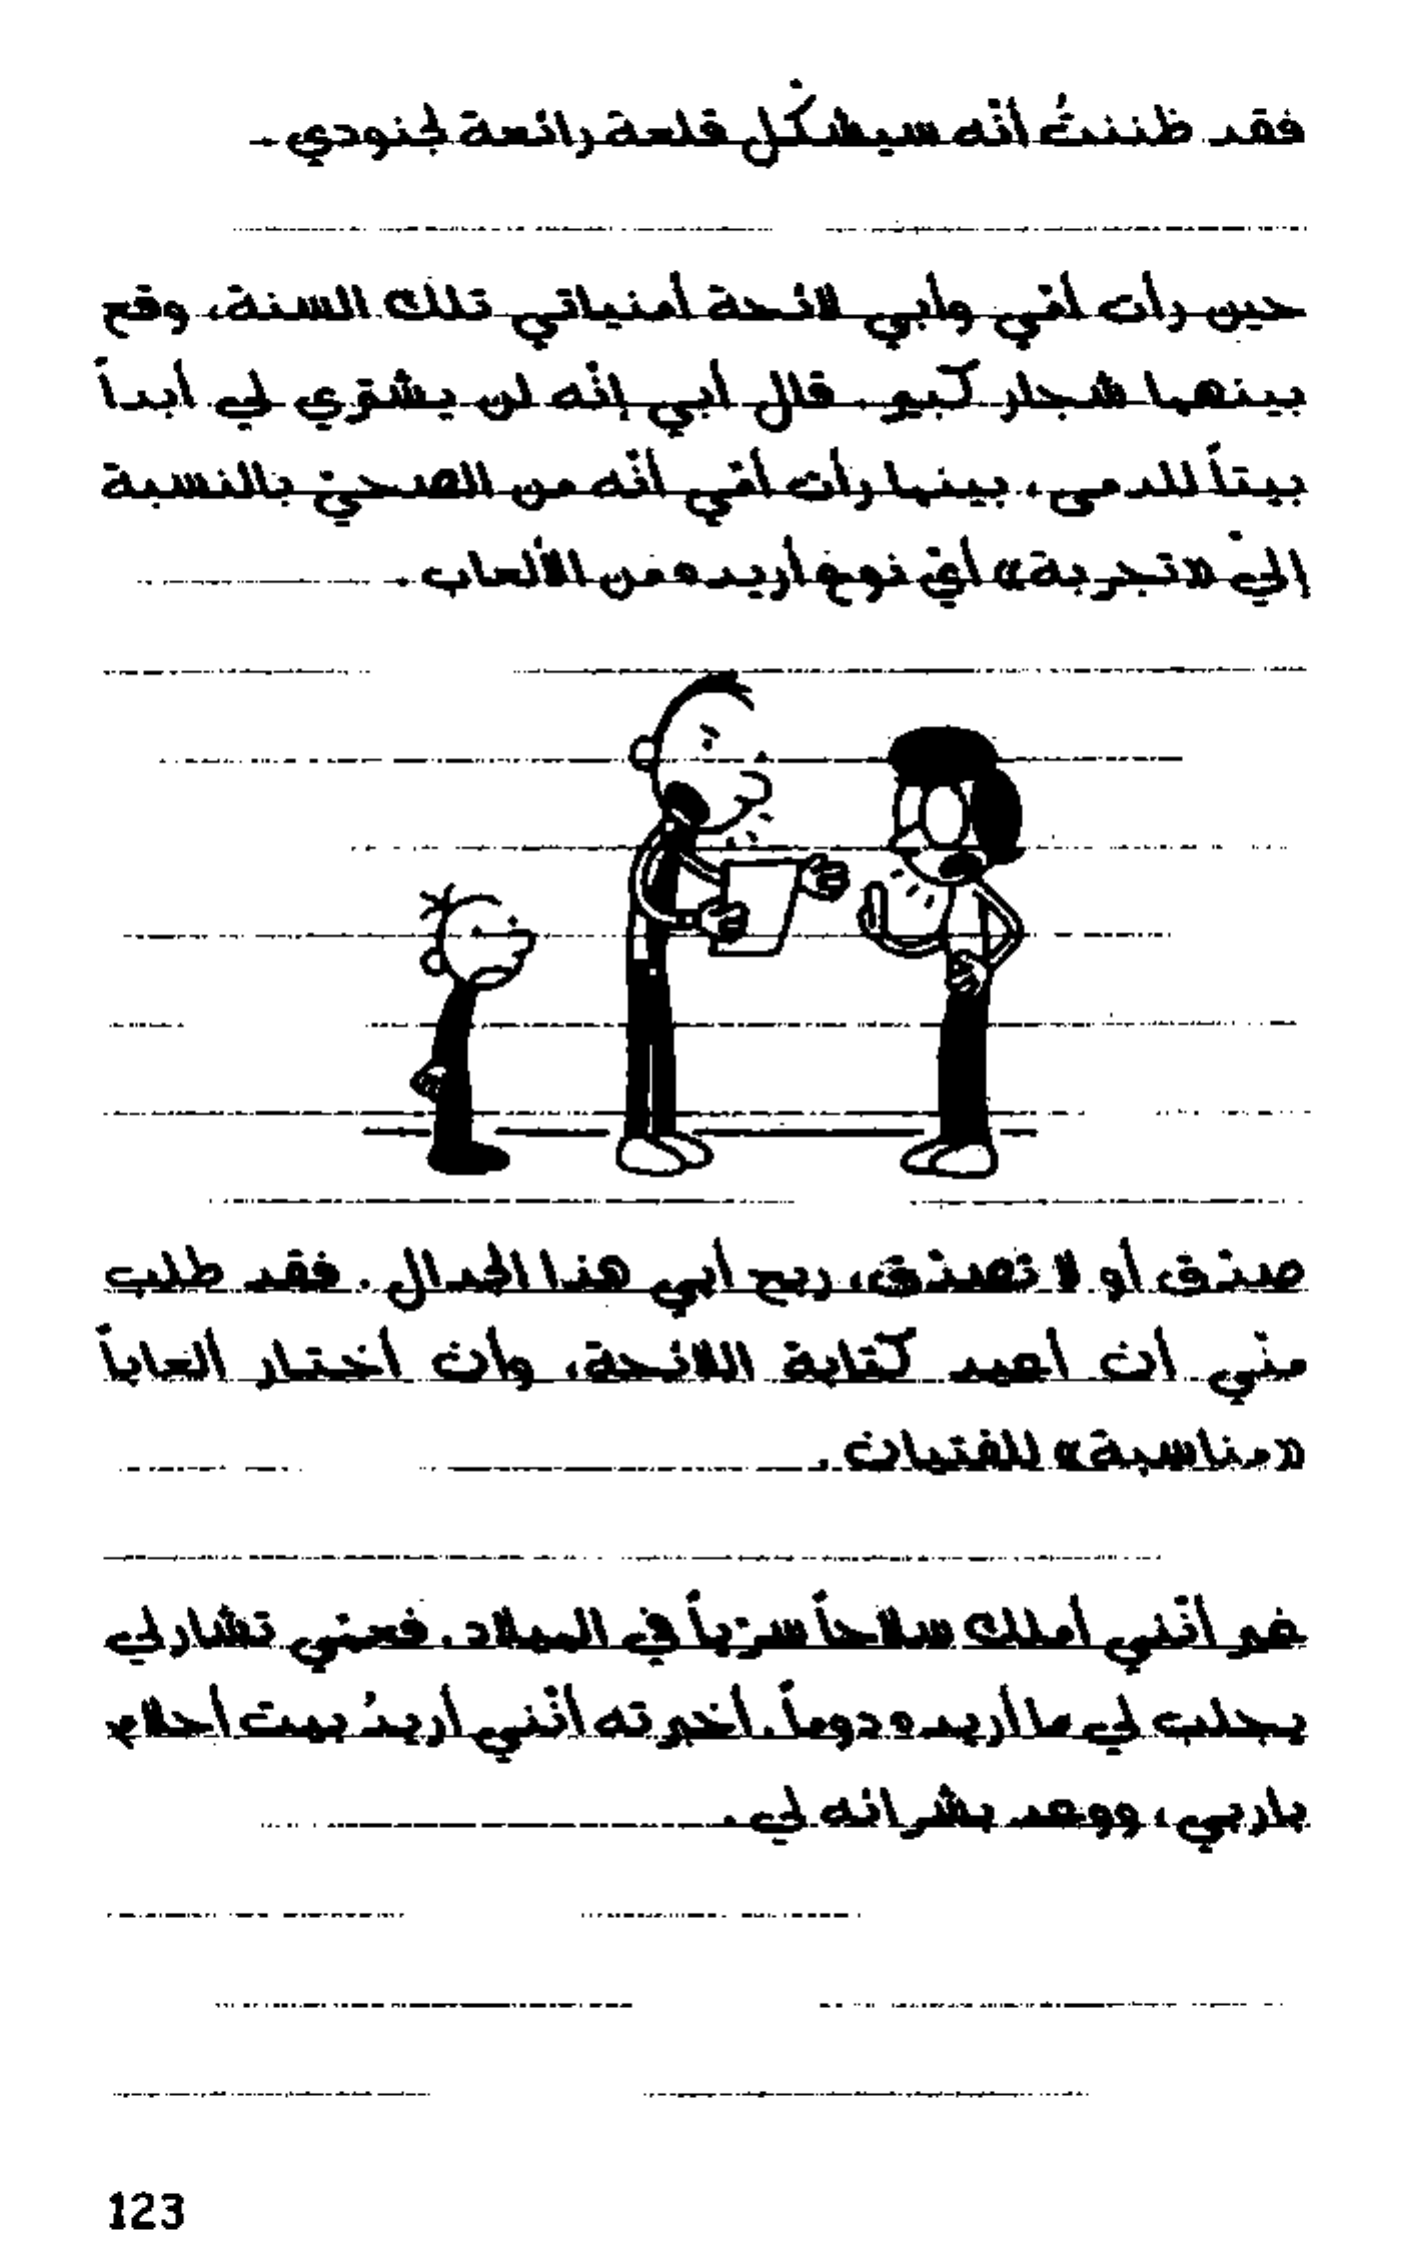 فقد ظننتُ أنّه سيشكّل قلعة رائعة لجنودي -
حين رأت أمّي وأبي لائحة أمنياتي تلك السنة، وقع
بينهما شجار كبير. قال أبي إنّه لن يشتري لي أبداً
بيتاً للدمى، بينما رأت أمّي أنّه من الصحيّ بالنسبة
إليّ «تجربة» أيّ نوع أريده من الألعاب.
صدّق أو لا تصدّق، ربح أبي هذا الجدال. فقد طلب
منّي أن أعيد كتابة اللائحة، وأن أختار ألعاباً
«مناسبة» للفتيان.
غير أنّني أملك سلاحاً سرّياً في الميلاد. فعمّي تشارلي
يجلب لي ما أريده دوماً. أخبرته أنّني أريدُ بيت أحلام
باربي، ووعد بشرائه لي.
123